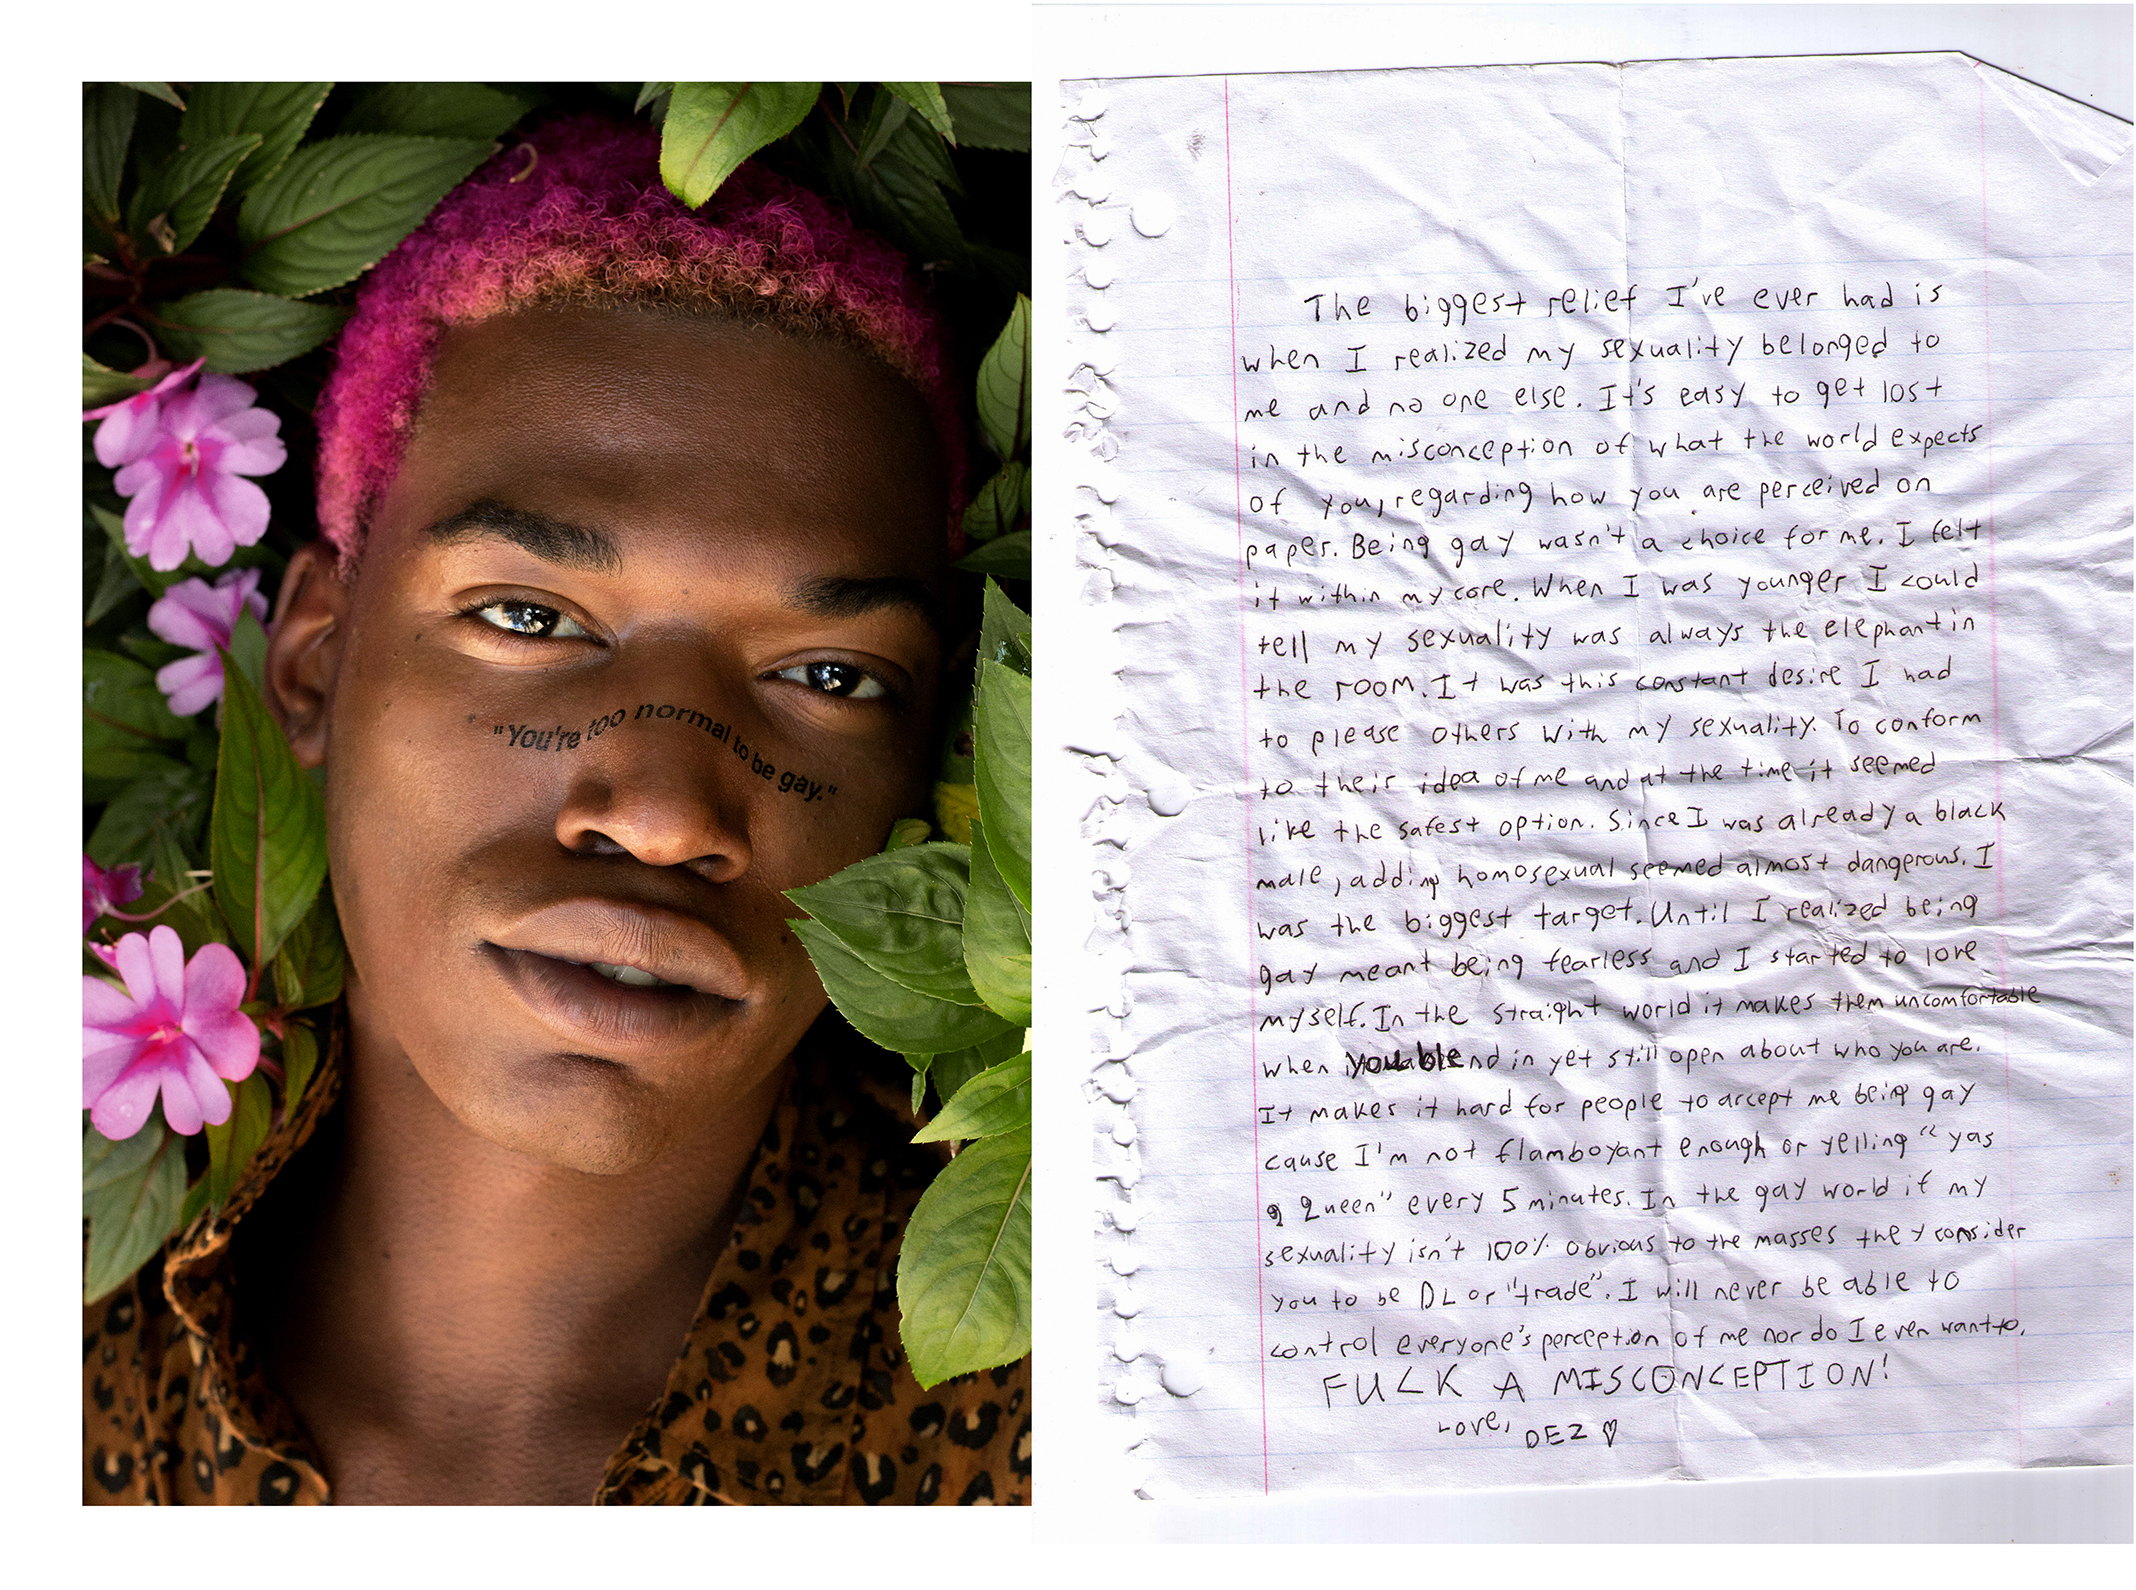 "You're too normal to be gay."
The biggest relief I've ever had is
when I realized my sexuality belonged to
me and no one else. It's easy to get lost
in the misconception of what the world expects
of you, regarding how you are perceived on
paper. Being gay wasn't a choice for me. I felt
it within my core. When I was younger I could
tell my sexuality was always the elephant in
the room. It was this constant desire I had
to please others with my sexuality. To conform
to their idea of me and at the time it seemed
like the safest option. Since I was already a black
male, adding homosexual seemed almost dangerous. I
was the biggest target. Until I realized being
gay meant being fearless and I started to love
myself. In the straight world it makes them uncomfortable
when you blend in yet still open about who you are.
It makes it hard for people to accept me being gay
cause I'm not flamboyant enough or yelling "yas
Queen" every 5 minutes. In the gay world if my
sexuality isn't 100% obvious to the masses they consider
you to be DL or "trade". I will never be able to
control everyone's perception of me nor do I even want to.
FUCK A MISCONCEPTION!
Love, DEZ